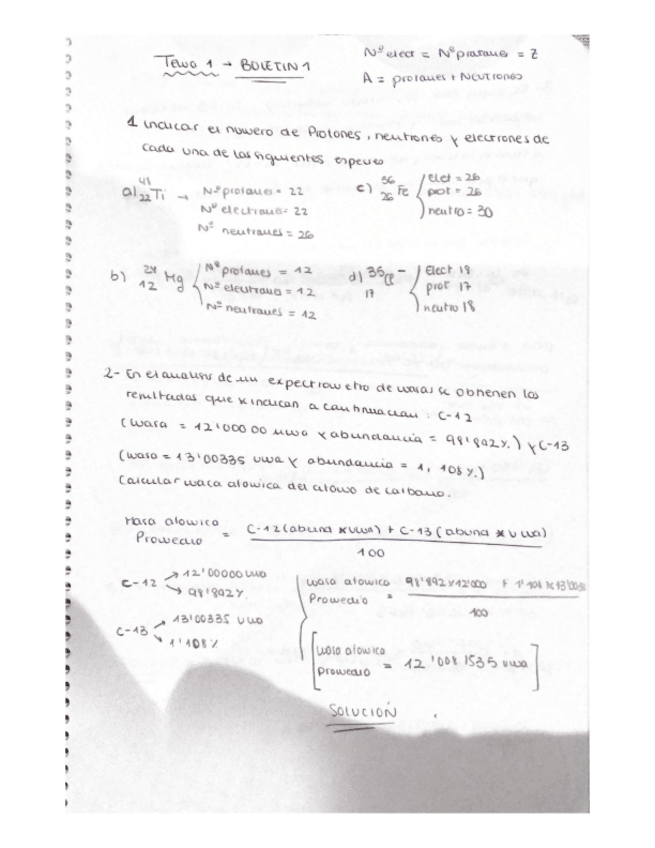 Tema 1 → BOLETIN 1
Nº elect = Nº protones = Z
A = protones + NEUTRONES
1 Indicar el numero de Protones, neutrones y electrones de
cada una de las siguientes especies
a) 48 22 Ti → Nº protones = 22
Nº electrones = 22
Nº neutrones = 26
c) 56 26 Fe elet = 26
prot = 26
neutro = 30
b) 24 12 Mg Nº protones = 12
Nº electrones = 12
Nº neutrones = 12
d) 35 17 Cl - Elect 18
prot 17
neutro 18
2- En el analisis de un espectrometro de masas se obtienen los
resultados que se indican a continuacion : C-12
(masa = 12'000 00 uma y abundancia = 98'892%.) y C-13
(masa = 13'00335 uma y abundancia = 1, 108 %.)
Calcular masa atomica del atomo de carbono.
Masa atomica Promedio = C-12 (abund x uma) + C-13 (abund x uma)
100
C-12 → 12'00000 uma
→ 98'892%
C-13 → 13'00335 uma
→ 1'108%
masa atomica Promedio = 98'892 x 12'000 + 1'108 x 13'0033
100
masa atomica promedio = 12'0081535 uma
SOLUCIÓN